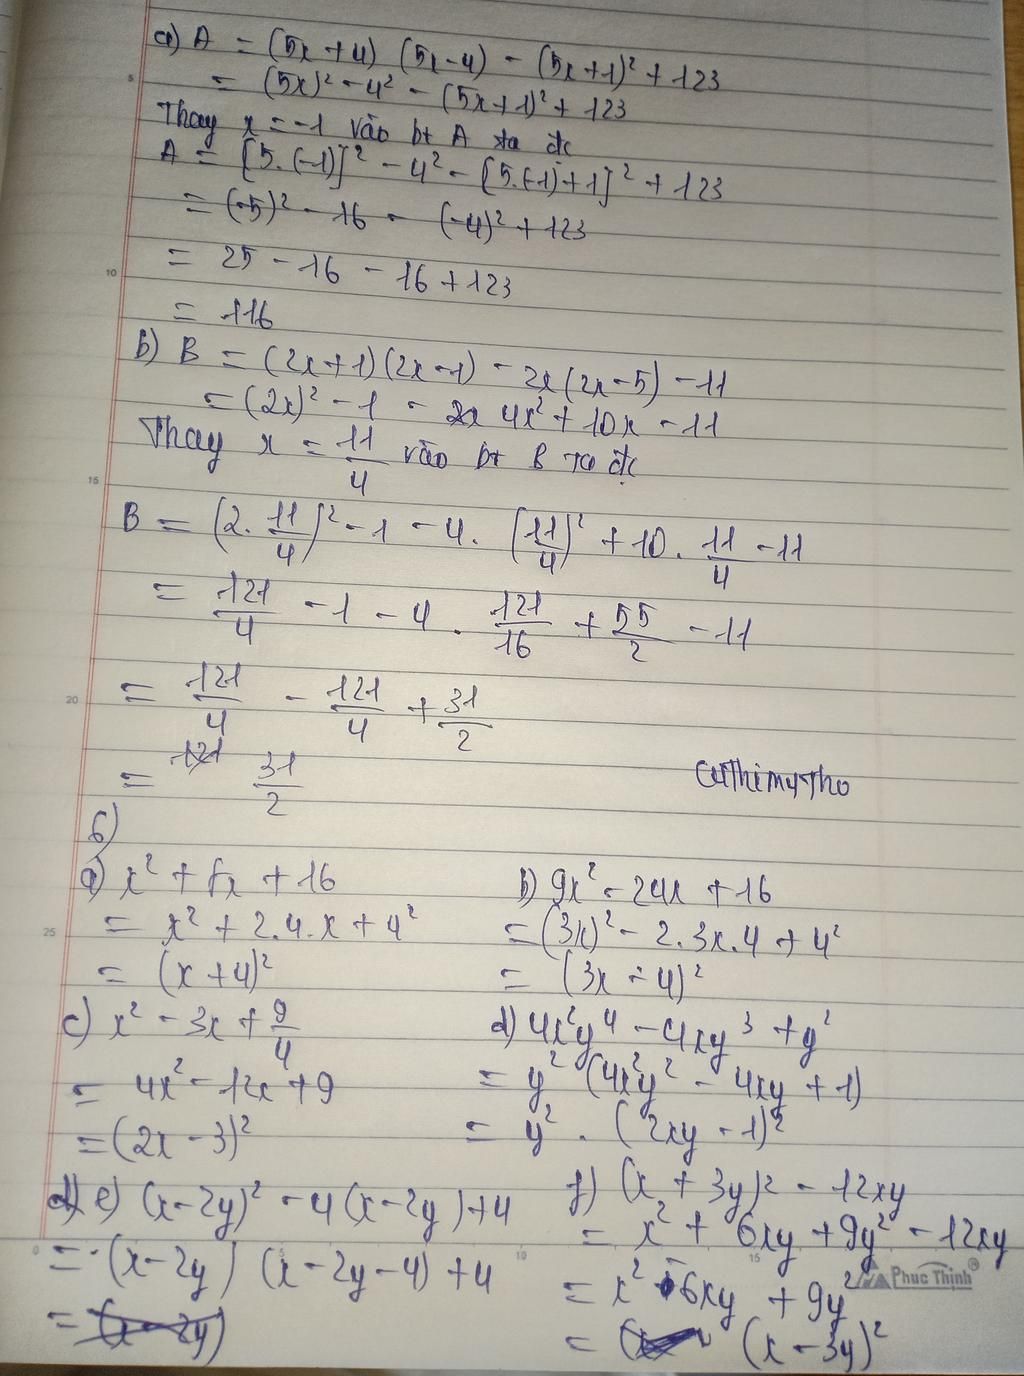 a) A = (5x + 4) (5x - 4) - (5x + 1)² + 123
= (5x)² - 4² - (5x + 1)² + 123
Thay x = -1 vào bt A ta đc
A = [5.(-1)]² - 4² - [5.(-1) + 1]² + 123
= (-5)² - 16 - (-4)² + 123
= 25 - 16 - 16 + 123
= 116
b) B = (2x + 1)(2x - 1) - 2x(2x - 5) - 11
= (2x)² - 1 - 4x² + 10x - 11
Thay x = 11/4 vào bt B ta đc
B = (2. 11/4)² - 1 - 4. (11/4)² + 10. 11/4 - 11
= 121/4 - 1 - 4. 121/16 + 55/2 - 11
= 121/4 - 121/4 + 31/2
= 31/2
CuThimyTho
6)
a) x² + 8x + 16
= x² + 2.4.x + 4²
= (x + 4)²
b) 9x² - 24x + 16
= (3x)² - 2.3x.4 + 4²
= (3x - 4)²
c) x² - 3x + 9/4
= 4x² - 12x + 9
= (2x - 3)²
d) 4x²y⁴ - 4xy³ + y²
= y² (4x²y² - 4xy + 1)
= y² . (2xy - 1)²
e) (x - 2y)² - 4(x - 2y) + 4
= (x - 2y) (x - 2y - 4) + 4
= (x - 2y)
f) (x + 3y)² - 12xy
= x² + 6xy + 9y² - 12xy
= x² - 6xy + 9y²
= (x - 3y)²
5
10
15
20
25
0
5
10
15
Phuc Thinh®